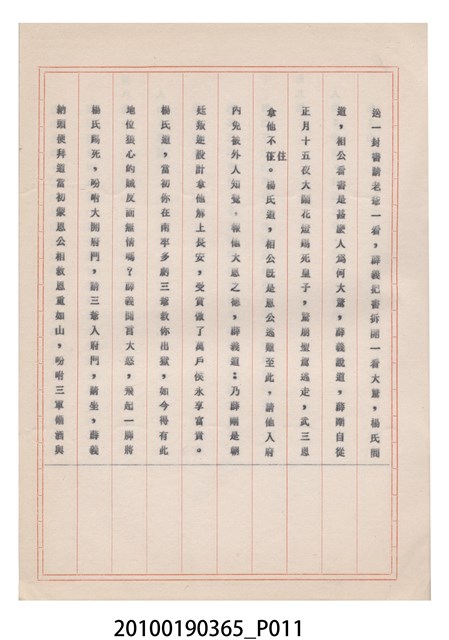 過一封書請老爺一看，薛義把書拆開一看大驚，楊氏問
道，相公看書是甚麼人爲何大驚，薛義說道，薛剛自從
正月十五夜大鬧花燈踢死皇子，驚崩聖駕逃走，武三思
拿他不住。楊氏道，相公既是恩公逃難至此，請他入府
內免被外人知覺，報他大恩之德，薛義道：乃薛剛是朝
廷叛逆設計拿他解上長安，受賞做了萬戶侯永享富貴。
楊氏道，當初你在南牢多虧三爺救你出獄，如今得有此
地位狼心的賊反面無情嗎？薛義聞言大怒，飛起一脚將
楊氏踢死，吩咐大開府門，請三爺入府門，請坐，薛義
納頭便拜道當初蒙恩公相救恩重如山，吩咐三軍備酒與
20100190365_P011